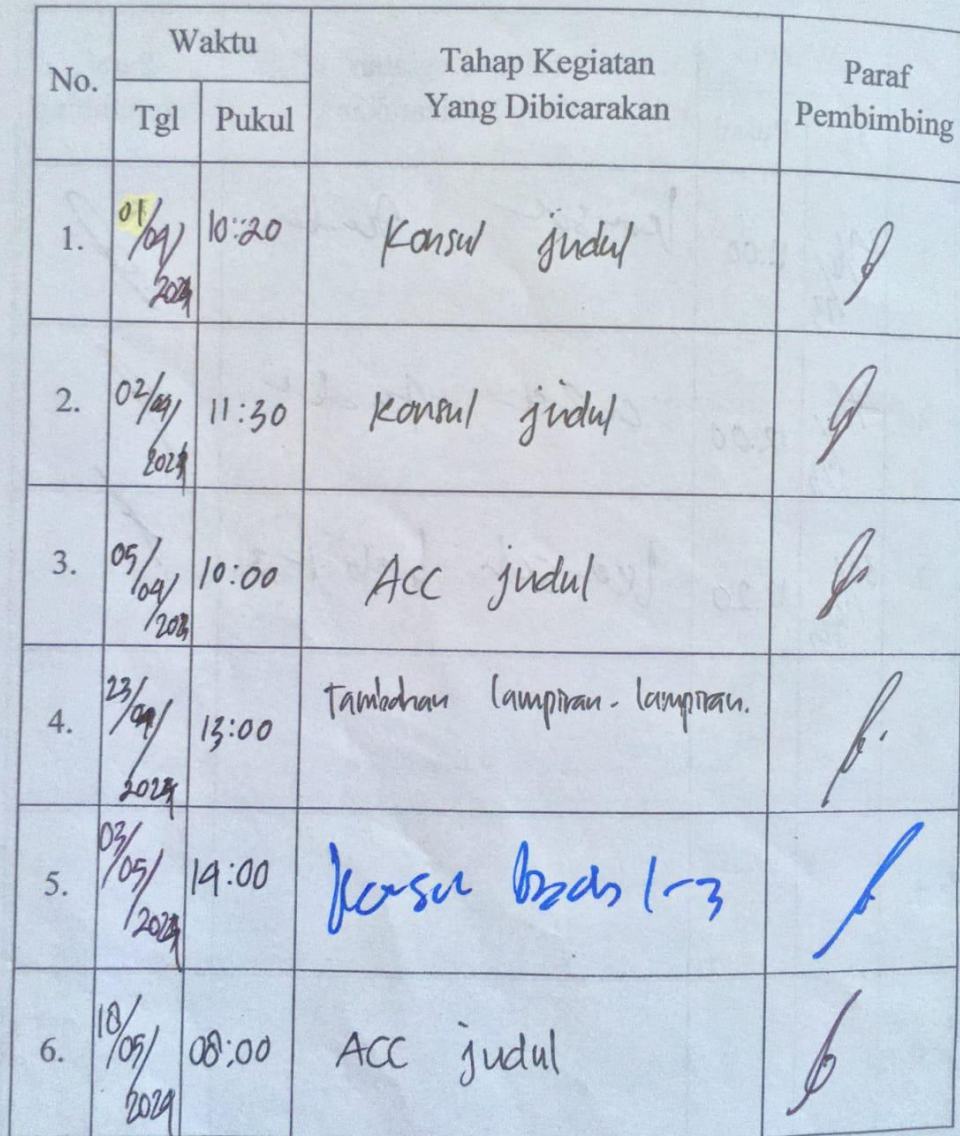 No. Waktu Tahap Kegiatan Yang Dibicarakan Paraf Pembimbing
Tgl Pukul
1. 01/04/2024 10:20 Konsul judul
2. 02/04/2024 11:30 Konsul judul
3. 05/04/2024 10:00 ACC judul
4. 23/04/2024 13:00 Tambahan lampiran-lampiran.
5. 03/05/2024 14:00 Konsul bab 1-3
6. 18/05/2024 08:00 ACC judul